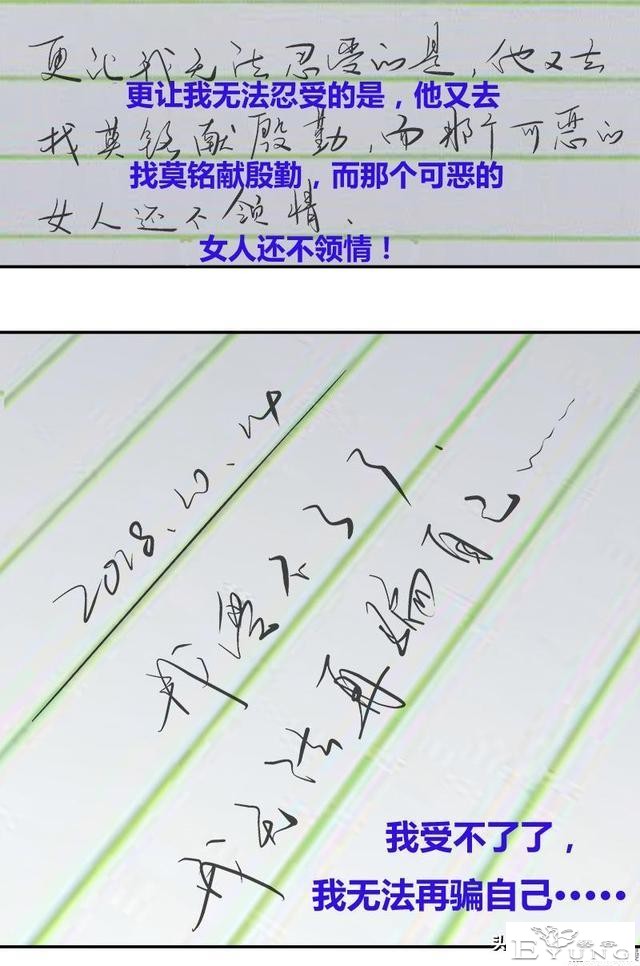 更让我无法忍受的是，他又去
更让我无法忍受的是，他又去
找莫铭献殷勤，而那个可恶的
找莫铭献殷勤，而那个可恶的
女人还不领情、
女人还不领情！
2018.10.24
我受不了了.
我无法再骗自己……
我受不了了，
我无法再骗自己……
EYUNG